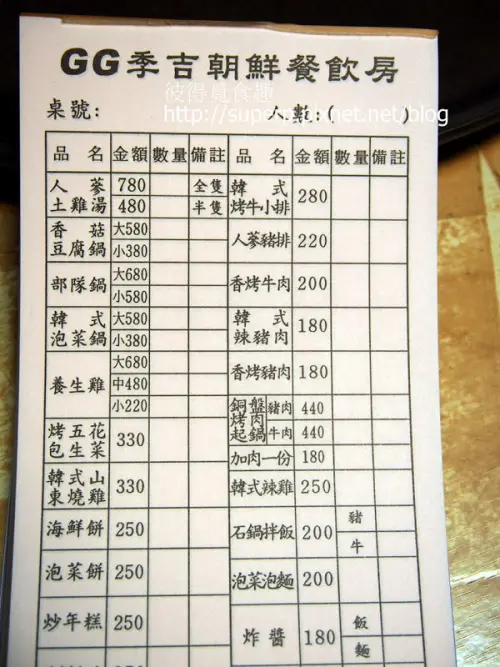 GG季吉朝鮮餐飲房
彼得覓食趣
桌號: 人數: /
http://superm.pixnet.net/blog
品名 金額 數量 備註 品名 金額 數量 備註
人蔘 780 全隻 韓式
土雞湯 480 半隻 烤牛小排 280
香菇 大580
豆腐鍋 小380 人蔘豬排 220
部隊鍋 大680 香烤牛肉 200
小580
韓式 大580 韓式
泡菜鍋 小380 辣豬肉 180
大680
養生雞 中480 香烤豬肉 180
小220 銅盤豬肉 440
烤肉
烤五花 330 起鍋牛肉 440
包生菜 加肉一份 180
韓式山 330 韓式辣雞 250
東燒雞
海鮮餅 250 石鍋拌飯 200 豬
牛
泡菜餅 250 泡菜泡麵 200
炒年糕 250 炸醬 180 飯
麵